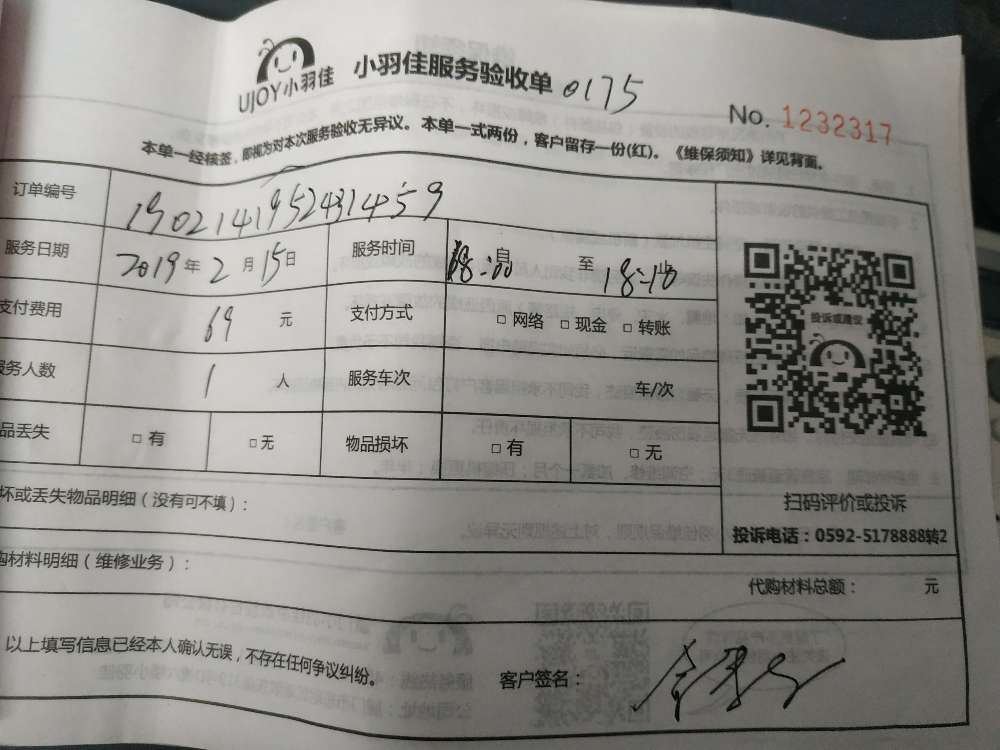 UJOY小羽佳 小羽佳服务验收单 0175
No. 1232317
本单一经核签，即视为对本次服务验收无异议。本单一式两份，客户留存一份(红)。《维保须知》详见背面。
订单编号 190214195243145 9
服务日期 2019年2月15日 服务时间 :00 自 至 18:10 止
支付费用 69 元 支付方式 □ 网络 □ 现金 □ 转账
服务人数 1 人 服务车次 车/次
品丢失 □ 有 □ 无 物品损坏 □ 有 □ 无
投诉或建议
扫码评价或投诉
投诉电话：0592-5178888转2
坏或丢失物品明细（没有可不填）：
购材料明细（维修业务）：
代购材料总额： 元
以上填写信息已经本人确认无误，不存在任何争议纠纷。
客户签名：